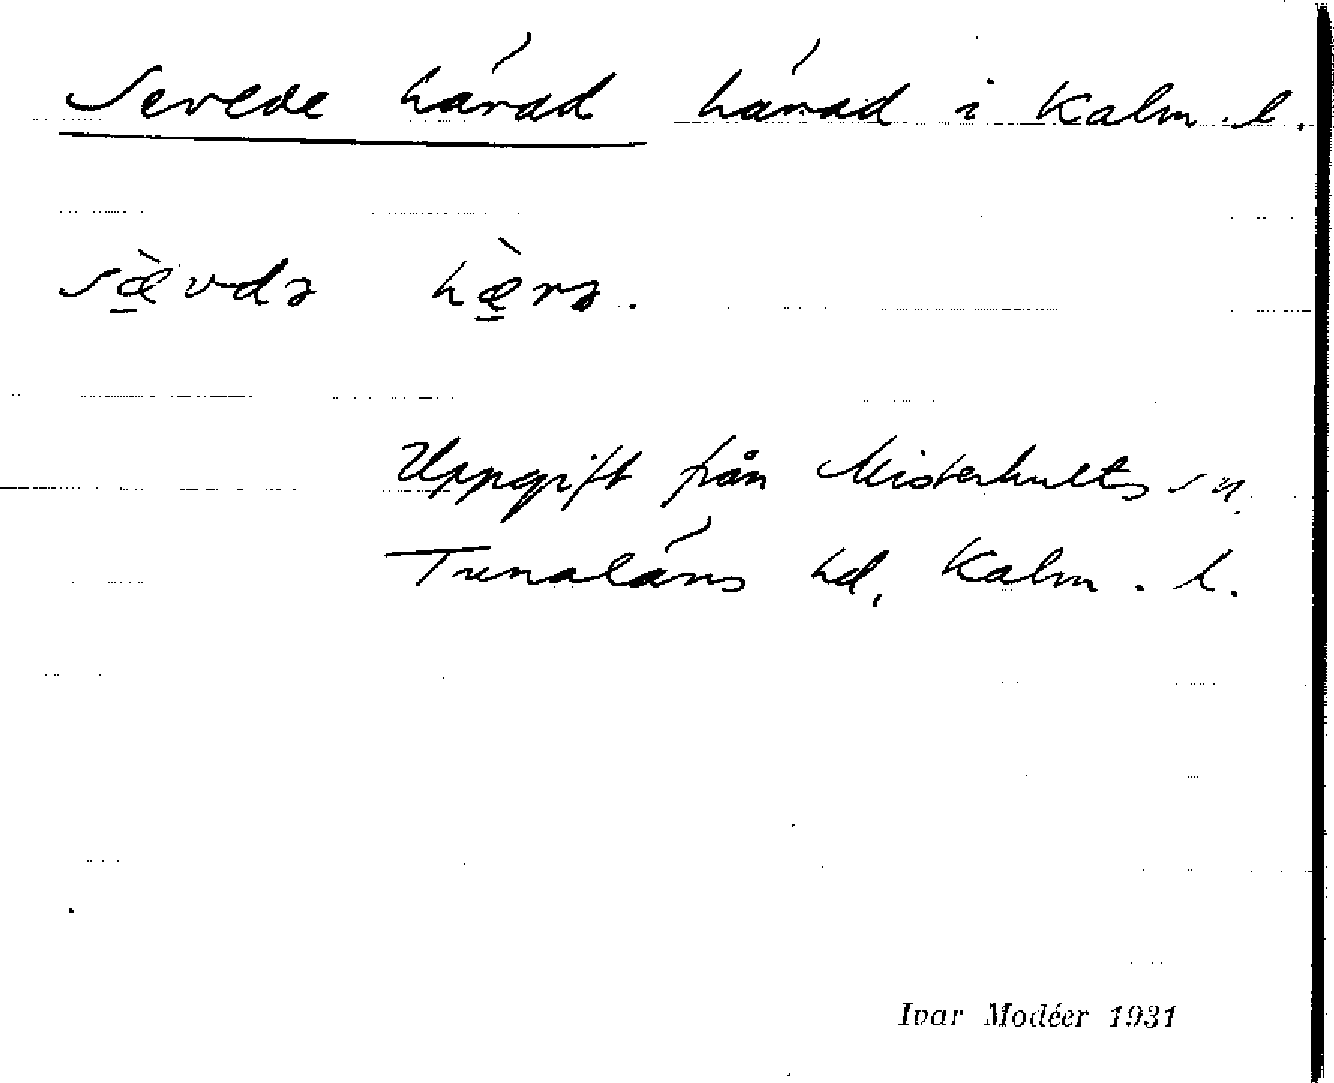 Sevede härad härad i Kalm. l.
sæ̲̀vdə hæ̲̀rə.
Uppgift från Misterhults sn.
Tunaläns hd, Kalm. l.
Ivar Modéer 1931